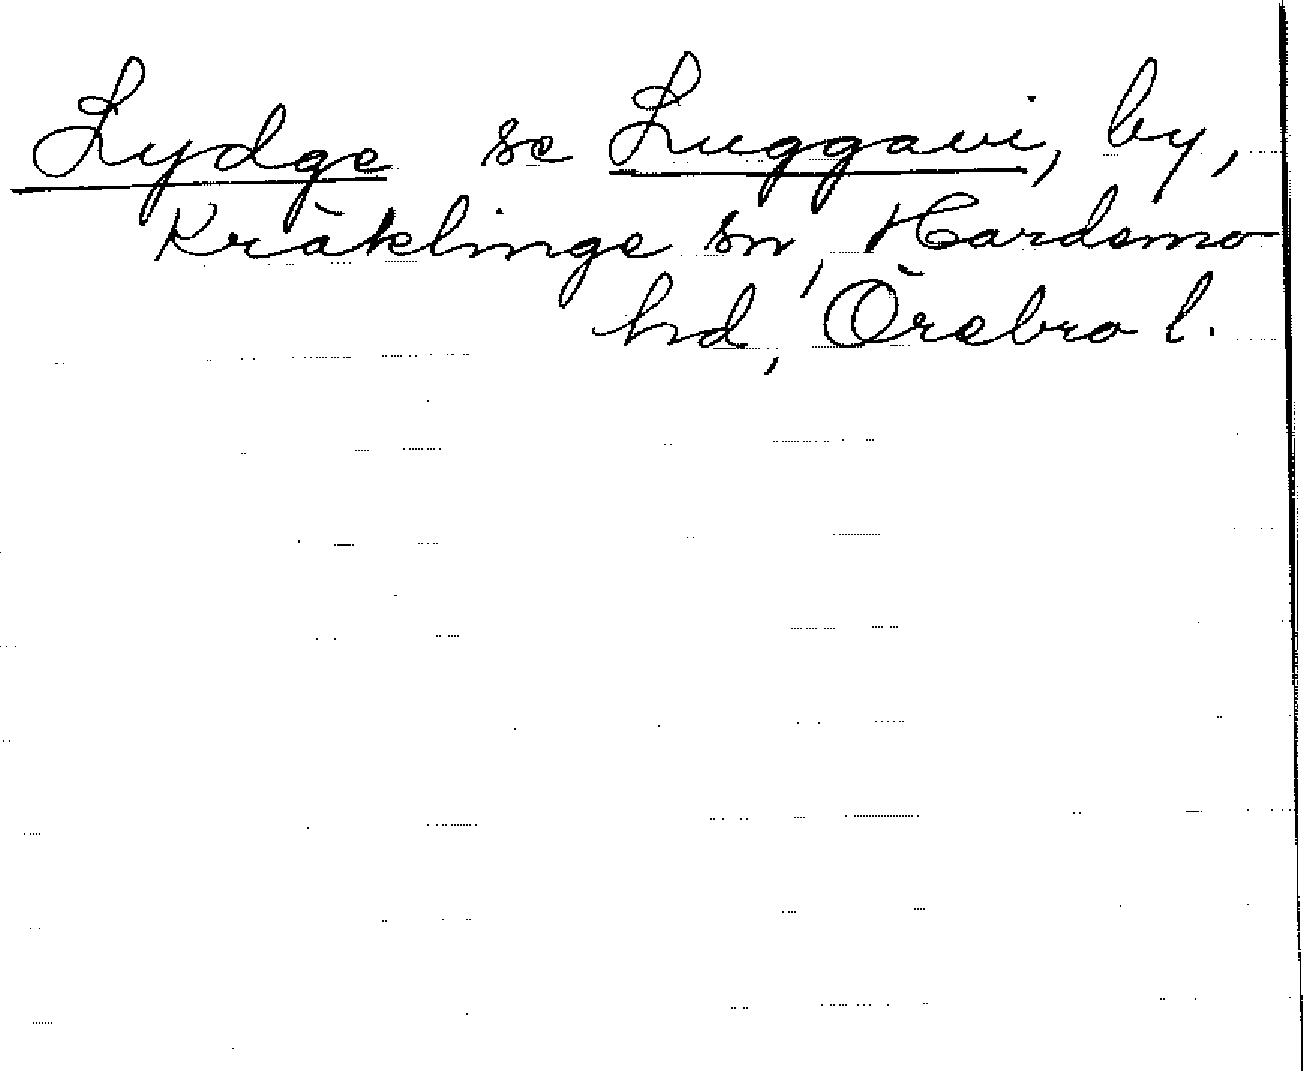 Lydge se Luggavi, by,
Kräklinge sn, Hardemo
hd, Örebro l.